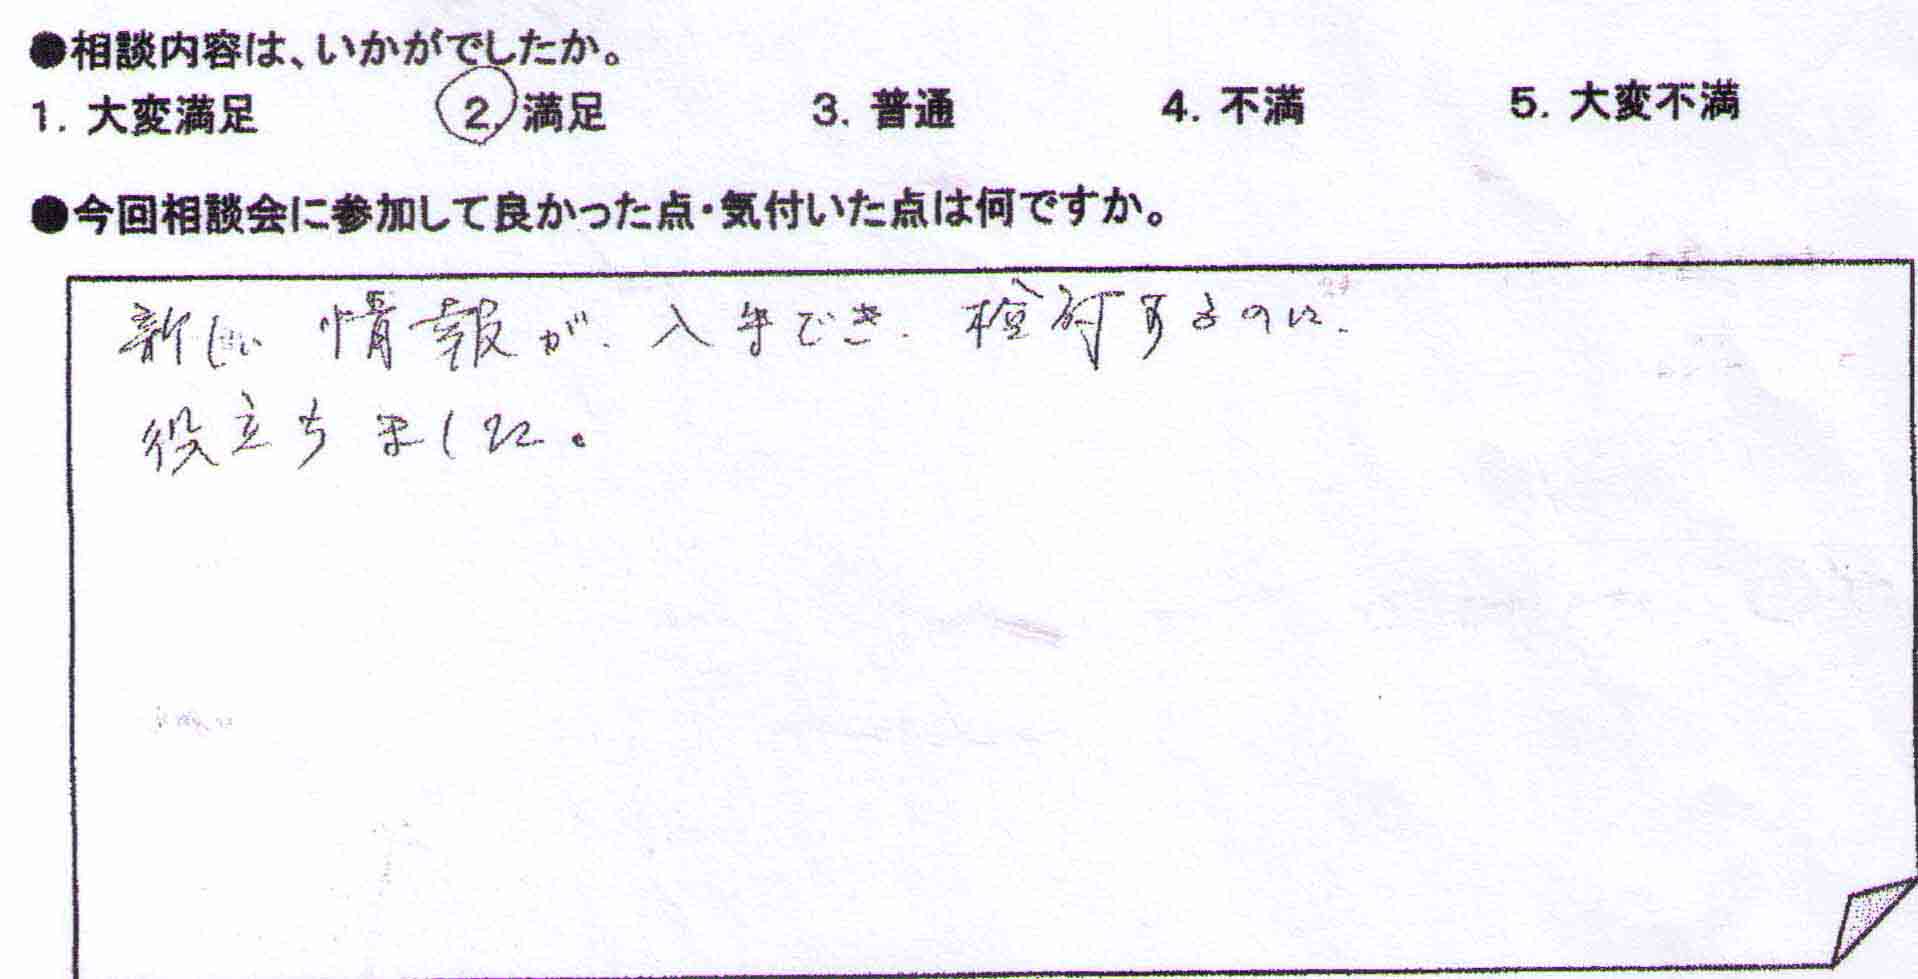 ●相談内容は、いかがでしたか。
1. 大変満足 2. 満足 3. 普通 4. 不満 5. 大変不満
●今回相談会に参加して良かった点・気付いた点は何ですか。
新しい情報が、入手でき、検討するのに、
役立ちました。